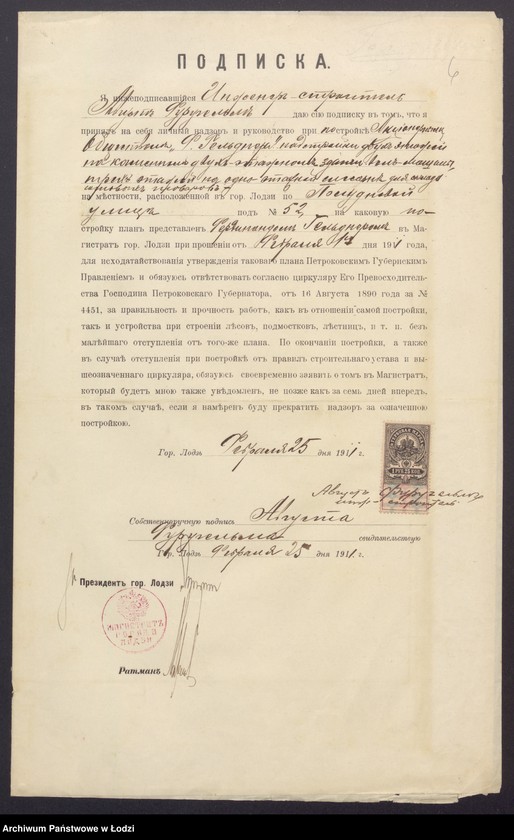 6
ПОДПИСКА.
Я нижеподписавшійся Инженеръ-строитель
Августъ Фуругельмъ даю сію подписку въ томъ, что я
принялъ на себя личный надзоръ и руководство при постройкѣ Акціонернымъ
Обществомъ „Ф. Гольднеръ"
на мѣстности, расположенной въ гор. Лодзи по
улицѣ подъ № 52, на каковую по-
стройку планъ представленъ Фердинандомъ Гольднеромъ въ Ма-
гистратъ гор. Лодзи при прошеніи отъ Февраля дня 1911 года,
для исходатайствованія утвержденія таковаго плана Петроковскимъ Губернскимъ
Правленіемъ и обязуюсь отвѣтствовать согласно циркуляру Его Превосходитель-
ства Господина Петроковскаго Губернатора, отъ 16 Августа 1890 года за №
4451, за правильность и прочность работъ, какъ въ отношеніи самой постройки,
такъ и устройства при строеніи лѣсовъ, подмостковъ, лѣстницъ, и т. п. безъ
малѣйшаго отступленія отъ того-же плана. По окончаніи постройки, а также
въ случаѣ отступленія при постройкѣ отъ правилъ строительнаго устава и вы-
шеозначеннаго циркуляра, обязуюсь своевременно заявить о томъ въ Магистратъ,
который будетъ мною также увѣдомленъ, не позже какъ за семь дней впередъ,
въ такомъ случаѣ, если я намѣренъ буду прекратить надзоръ за означенною
постройкою.
Гор. Лодзь Февраля 25 дня 1911 г.
1 РУБ. 25 КОП.
Августъ Фуругельмъ
Собственноручную подпись Августа
Фуругельма свидѣтельствую
Гор. Лодзь Февраля 25 дня 1911 г.
Президентъ гор. Лодзи
МАГИСТРАТЪ
ГОРОДА
ЛОДЗИ
Ратманъ
Archiwum Państwowe w Łodzi